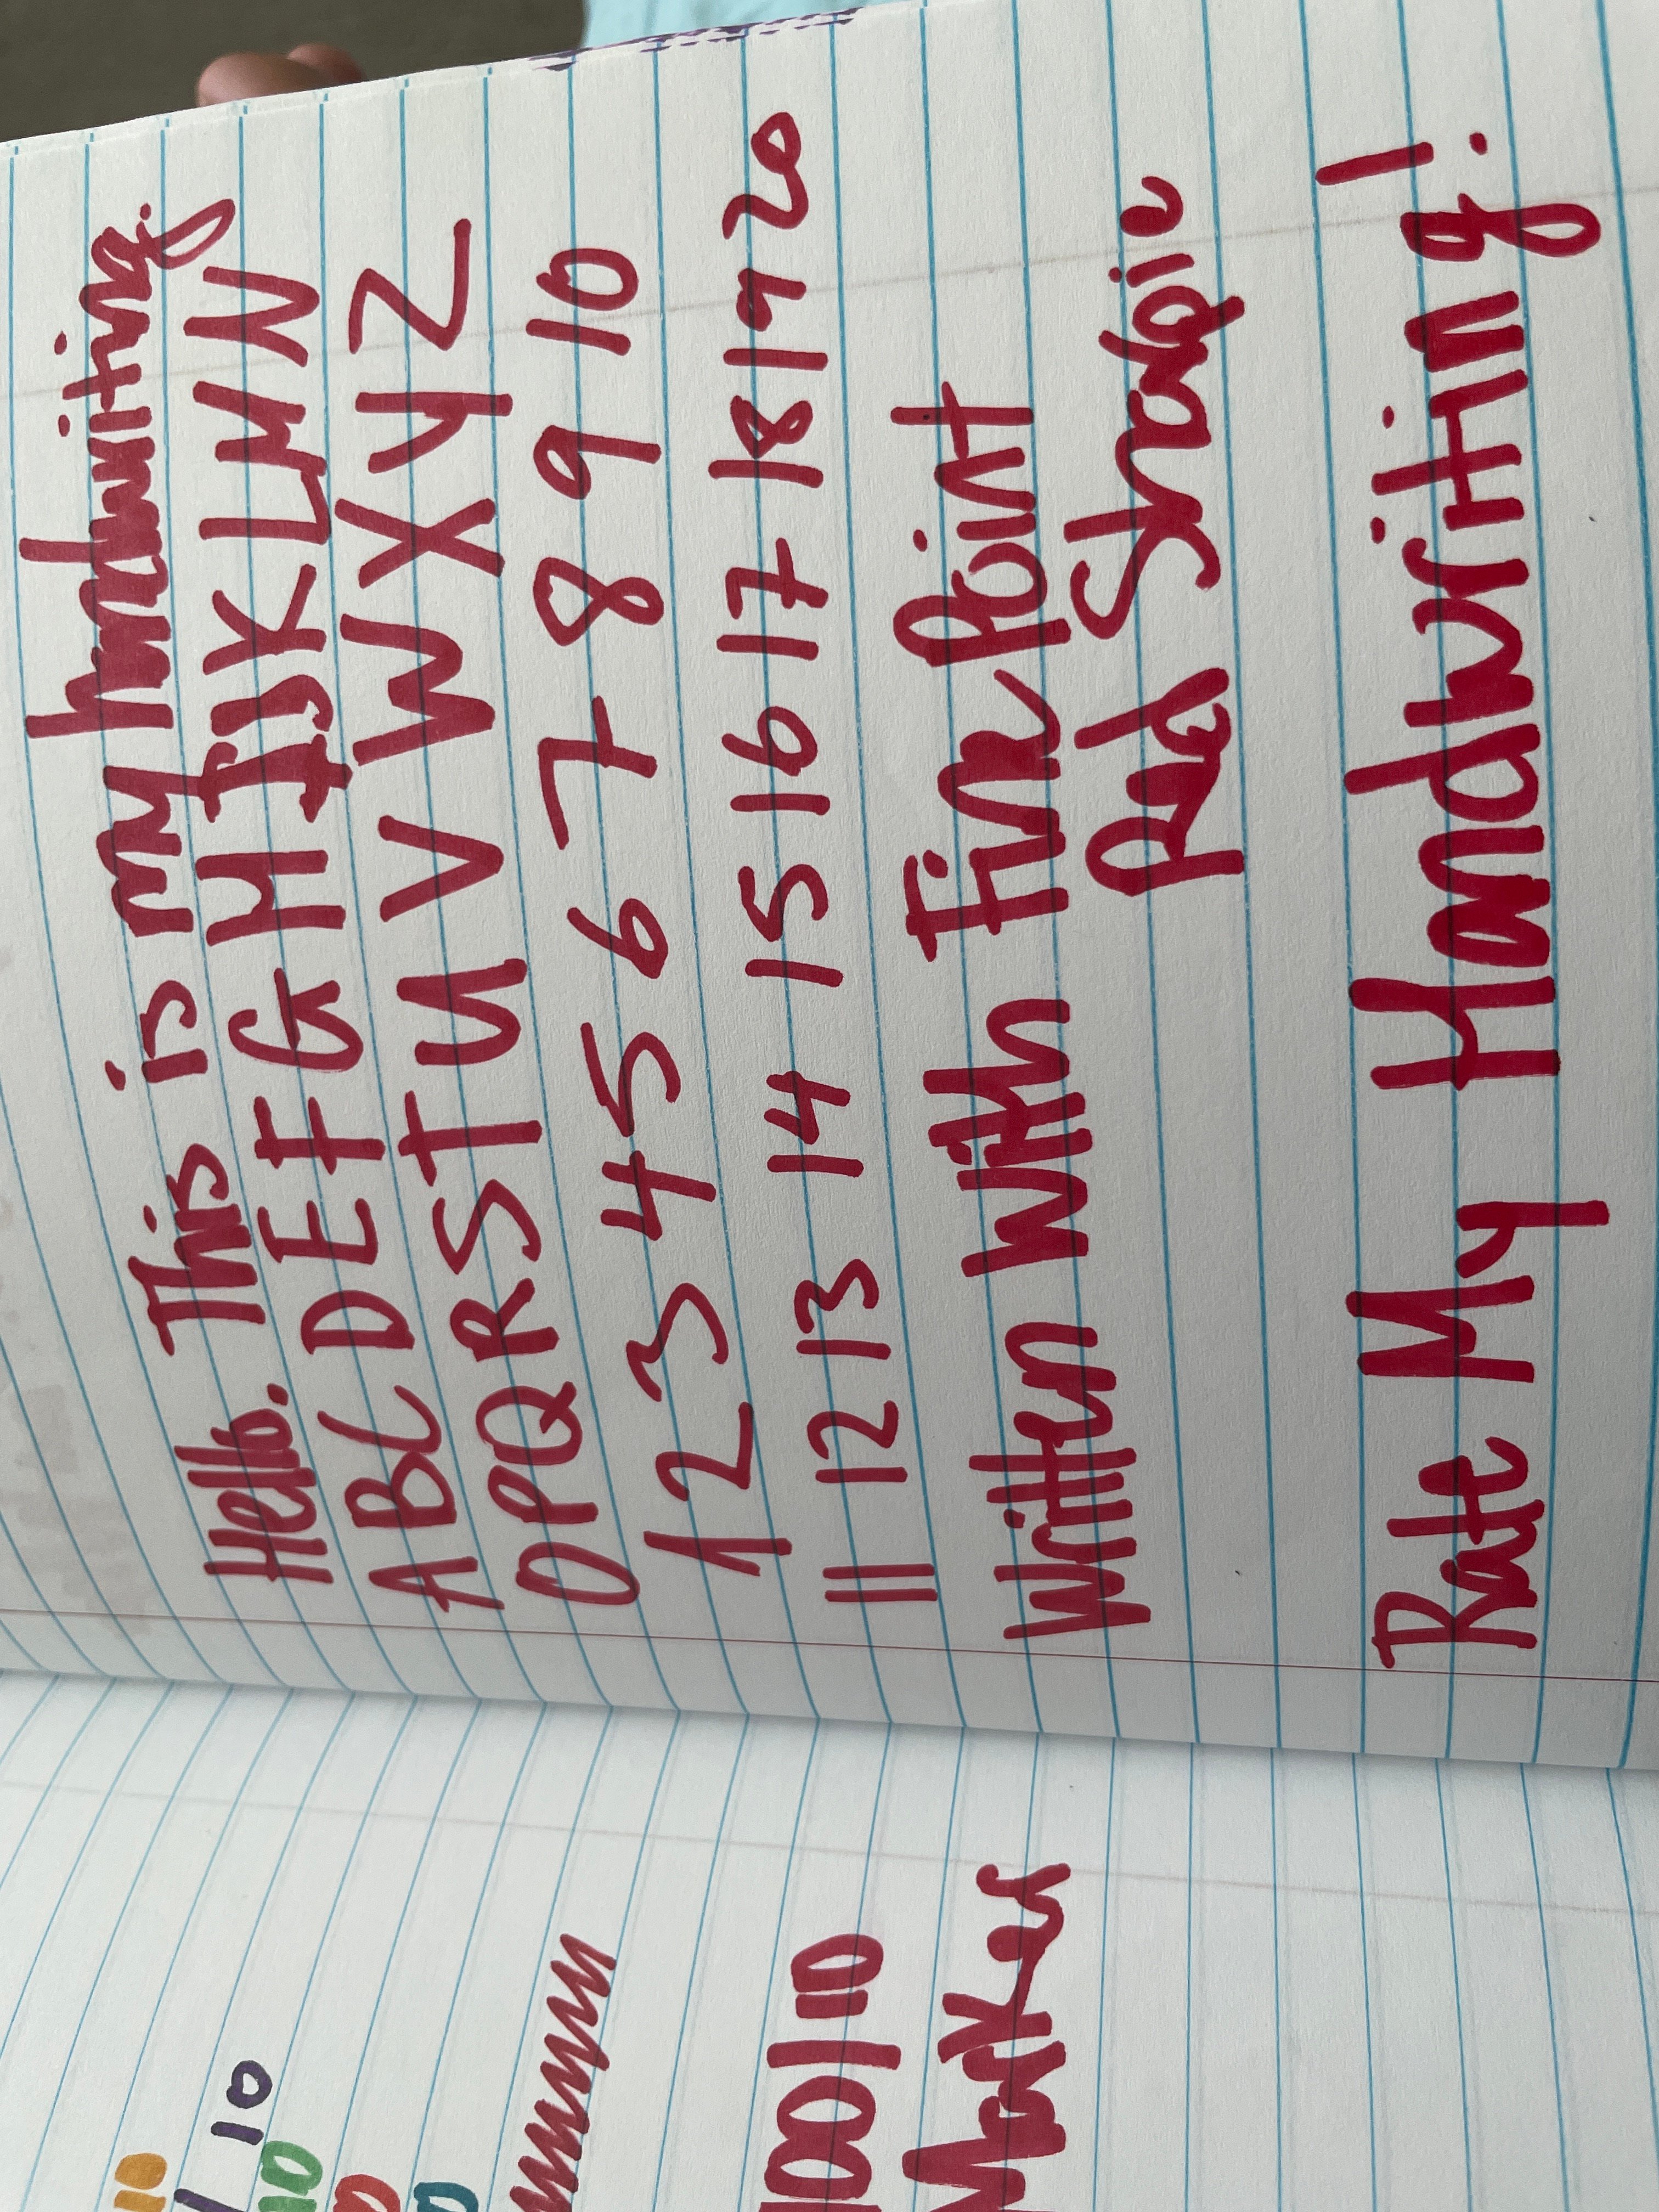 Hello. This is my handwriting.
ABCDEFGHIJKLMN
OPQRSTUVWXYZ
1 2 3 4 5 6 7 8 9 10
11 12 13 14 15 16 17 18 19 20
Written With Fine Point
Red Sharpie
Rate My Handwriting!
10
/10
10
100/10
Marker